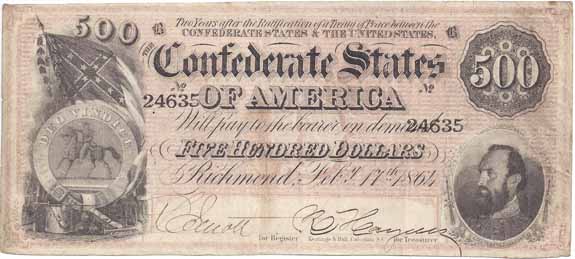 500
Two Years after the Ratification of a Treaty of Peace between the
CONFEDERATE STATES & THE UNITED STATES,
THE
Confederate States
OF AMERICA
500
No
24635
No
24635
Will pay to the bearer on demand
FIVE HUNDRED DOLLARS
Richmond, Feby. 17th 1864
DEO VINDICE
for Register
for Treasurer